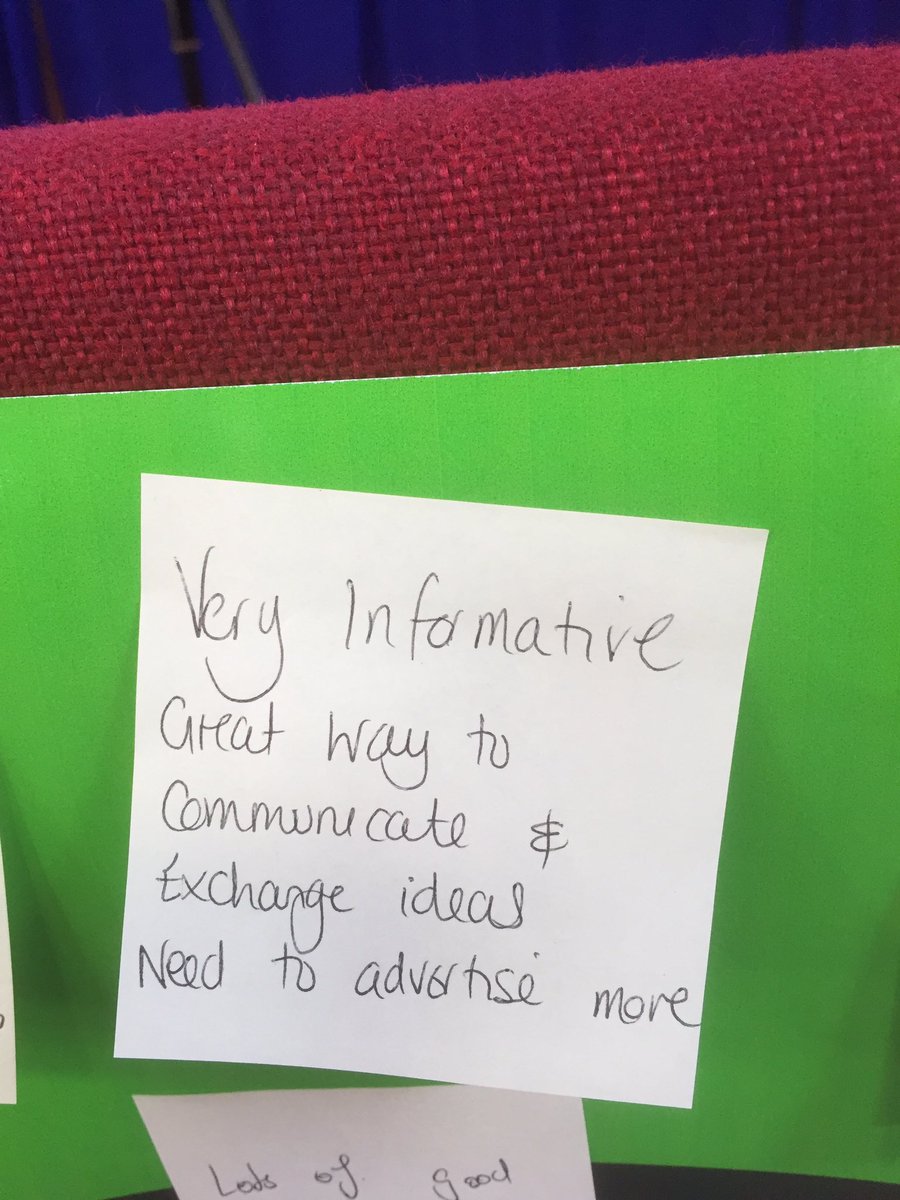 Very Informative
Great way to
Communicate &
Exchange ideas
Need to advertise more
Lots of good